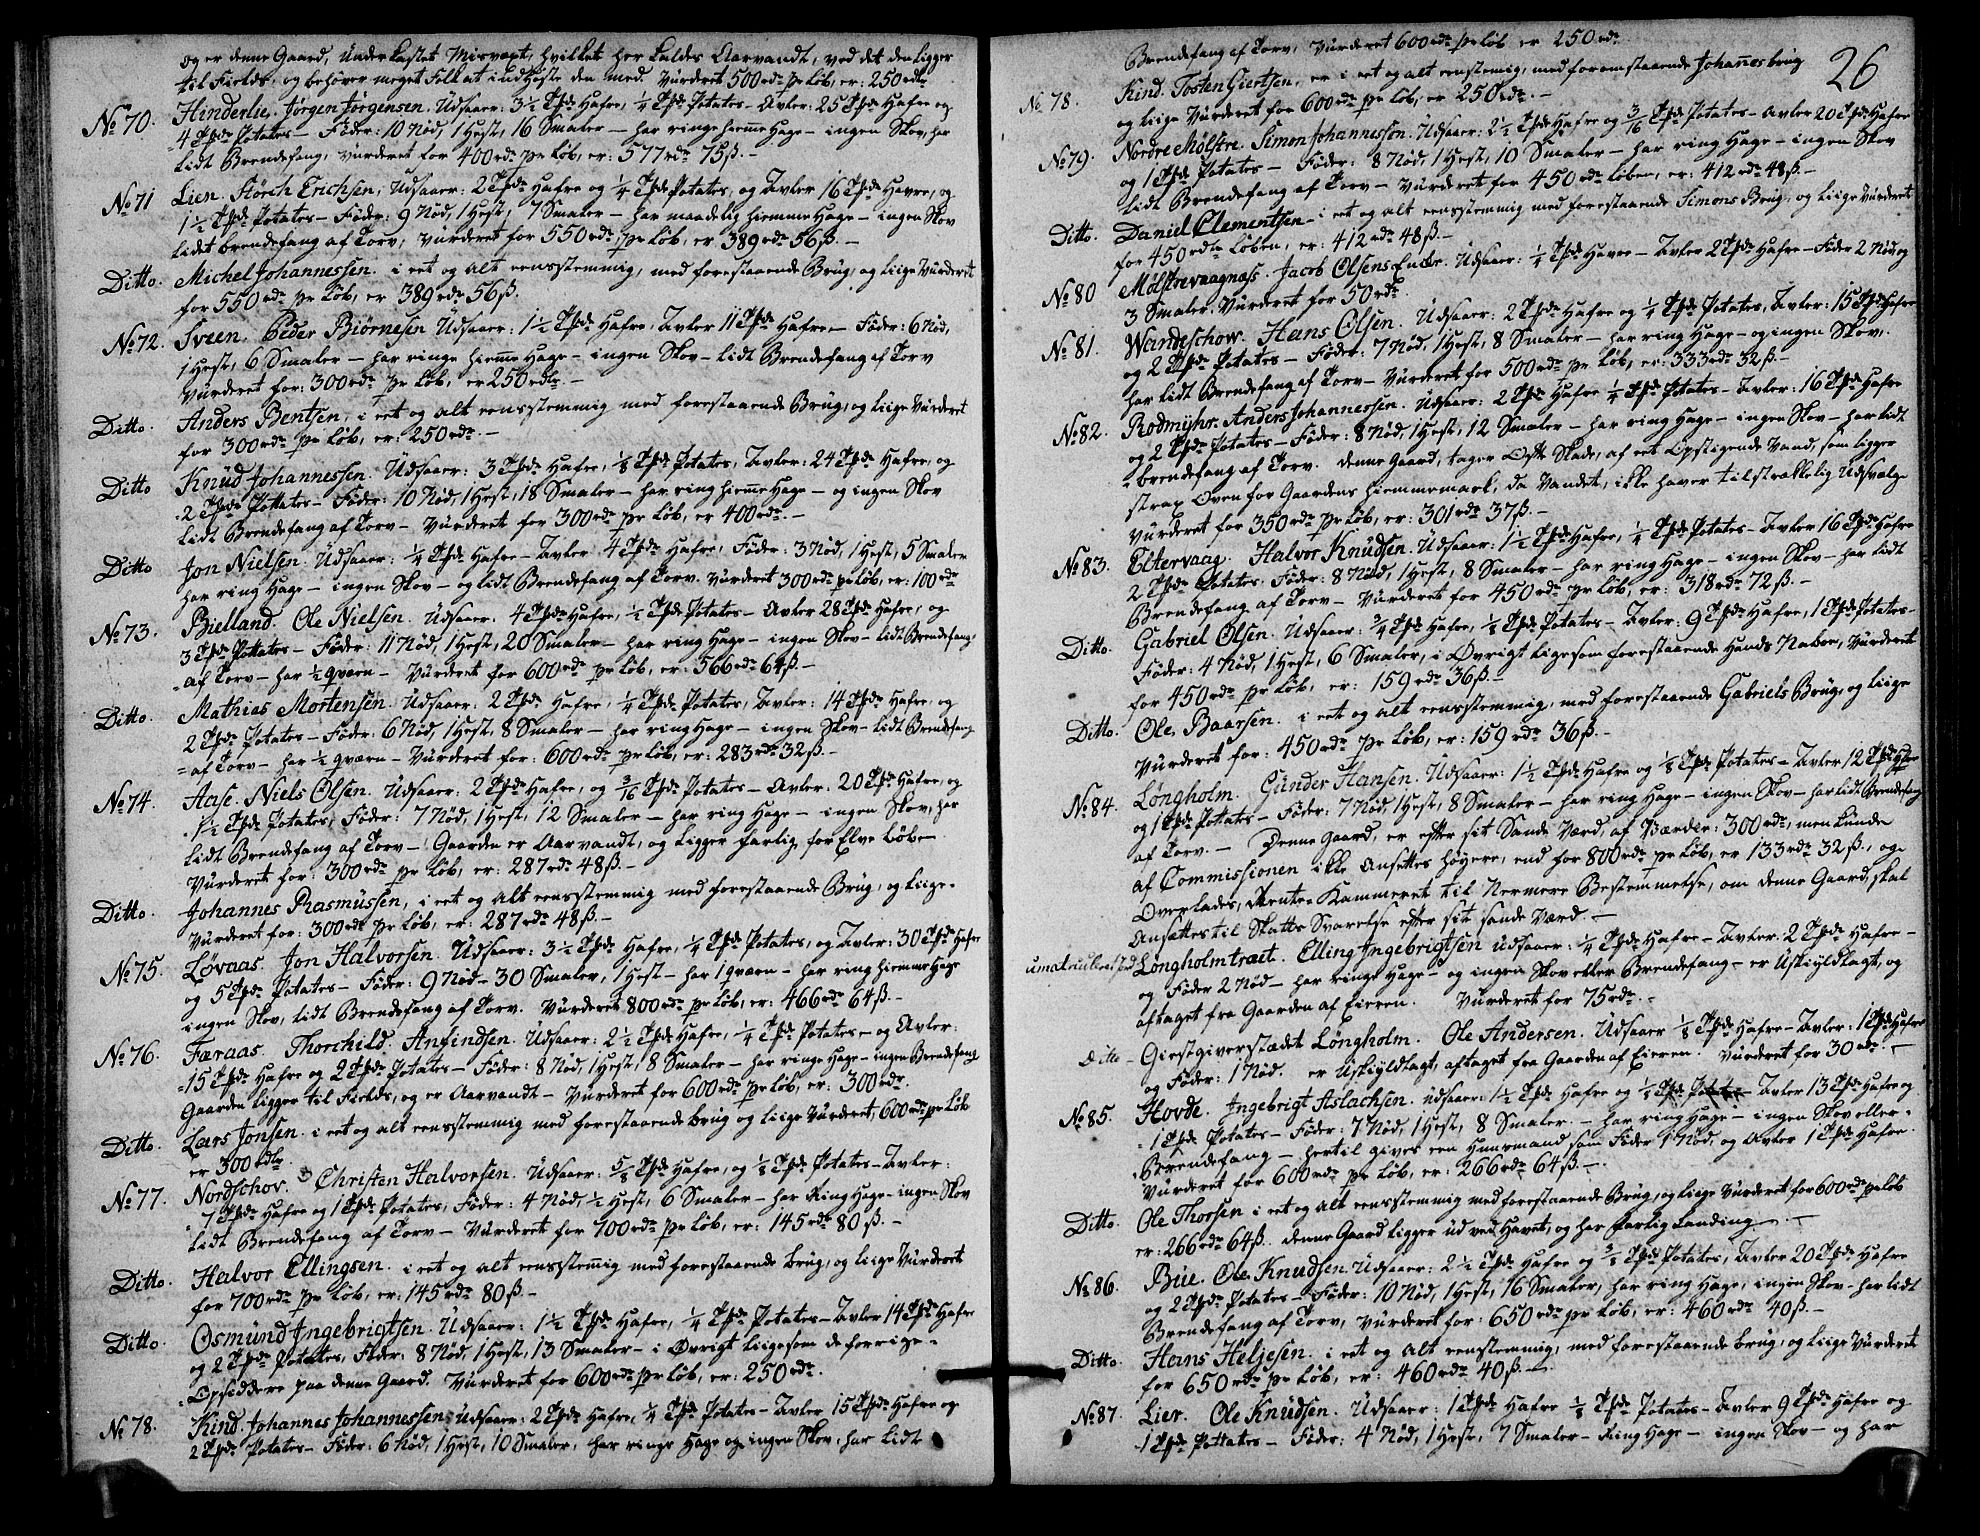 og er denne Gaard, Underkastet Misvext, hvilket her kaldes Aarvandt, ved det den ligger
til Fields, og behöver meget Folk at indhöste den med. Vürderet 500 rdr pr Löb, er: 250 rdr
No 70. Hinderlie. Jörgen Jörgensen. Udsaaer: 3½ Tpdr Hafre, ¼ Tpdr Potates – Avler: 25 Tpdr Hafre og
4 Tpdr Potates – Föder: 10 Nöd, 1 Hest, 16 Smaler – har ringe hieme Hage – ingen Skov, har
lidt Brendefang, vurderet for 400 rdr pr Löb, er: 577 rdr 75 ß. –
No 71 Lien. Störch Erichsen, Udsaaer: 2 Tpdr Hafre og ¼ Tpdr Potates, og Avler 16 Tpdr Havre, og
1½ Tpdr Potates – Föder: 9 Nöd, 1 Hest, 7 Smaler – har maadelig hiemme Hage – ingen Skov
lidt brendefang af Torv, vürderet for 550 rdr pr Löb, er 389 rdr 56 ß. –
Ditto. Michel Johannessen. i eet og alt eensstemmig, med forestaaende Brüg, og liige Vürderet
for 550 rdr pr Löb, er 389 rdr 56 ß.
No 72. Sveen. Peder Biörnesen Udsaaer: 1½ Tpdr Hafre, Avler 11 Tpdr Hafre – Föder: 6 Nöd,
1 Hest, 6 Smaler – har ringe hieme Hage – ingen Skov – lidt Brendefang af Torv
vurderet for: 300 rdr pr Löb, er 250 rdlr. –
Ditto. Anders Bentsen, i eet og alt eensstemmig med forestaaende Brüg, og liige Vürderet
for 300 rdr pr Löb, er: 250 rdr. –
Ditto Knüd Johannessen. Udsaaer: 3 Tpdr Hafre, ⅛ Tpdr Potates, Avler: 24 Tpdr Hafre, og
2 Tpdr Pottates – Föder: 10 Nöd, 1 Hest, 18 Smaler – har ring hieme Hage – og ingen Skov
lidt Brendefang af Torv – Vürderet for 300 rdr pr Löb, er 400 rdr. –
Ditto Jon Nielsen. Udsaaer: ¼ Tpdr Hafre – Avler 4 Tpdr Hafre, Föder: 3 Nöd, 1 Hest, 5 Smaler
har ring Hage – ingen Skov – og lidt Brendefang af Torv. Vurderet 300 rdr pr Löb, er: 100 rdr
No 73. Bielland. Ole Nielsen. Udsaaer: 4 Tpdr Hafre, ½ Tpdr Potates – Avler 28 Tpdr Hafre, og
3 Tpdr Pottates – Föder: 11 Nöd, 1 Hest, 20 Smaler – har ring Hage – ingen Skov – lidt Brendefang
af Torv – har ½ qværn – Vurderet for 600 rdr pr Löb, er: 566 rdr 64 ß. –
Ditto. Mathias Mortensen. Udsaaer: 2 Tpdr Hafre, ¼ Tpdr Potates, Avler: 14 Tpdr Hafre, og
2 Tpdr Potates – Föder: 6 Nöd, 1 Hest, 8 Smaler – har ring Hage – ingen Skov – lidt Brendefang
af Torv – har ½ qværn – Vürderet for: 600 rdr pr Löb, er: 283 rdr 32 ß. –
No 74. Aase. Niels Olsen. Udsaaer: 2 Tpdr Hafre, og 3/16 Tpdr Potates, Avler: 20 Tpdr Hafre, og
1½ Tpdr Potates, Föder: 7 Nöd, 1 Hest, 12 Smaler – har ring Hage – ingen Skov, har
lidt Brendefang af Torv – Gaarden er Aarvandt, og Ligger farlig for Elve Löb –
Vürderet for: 300 rdr pr Löb, er: 287 rdr 48 ß. –
Ditto. Johannes Rasmüssen, i eet og alt eensstemmig med forestaaende Brüg, og liige
Vürderet for: 300 rdr pr Löb, er: 287 rdr 48 ß. –
No 75. Lövaas. Jon Halvorsen. Udsaaer: 3½ Tpdr Hafre, ¼ Tpdr Potates, og Avler: 30 Tpdr Hafre
og 5 Tpdr Potates – Föder: 9 Nöd – 30 Smaler, 1 Hest – har 1 qværn – har ring hieme Hage
ingen Skov, lidt Brendefang af Torv. Vürderet 800 rdr pr Löb, er: 466 rdr 64 ß. –
No 76. Færaas. Thorchild. Anfindsen. Udsaaer: 2½ Tpdr Hafre, ¼ Tpdr Potates – og Avler:
15 Tpdr Hafre og 2 Tpdr Potates – Föder: 8 Nöd, 1 Hest, 8 Smaler – har ringe Hage – ingen Brendefang
Gaarden ligger til Fields, og er Aarvandt – Vürderet for 600 rdr pr Löb, er: 300 rdr.
Ditto. Lars Jonsen. i eet og alt eensstemmig med forestaaende brüg og liige Vürderet, 600 rdr pr Löb
er 300 rdlr.
No 77. Nordschov. Christen Halvorsen. Udsaaer: ⅝ Tpdr Hafre, og ⅛ Tpdr Potates – Avler:
7 Tpdr Hafre og 1 Tpdr Potates, Föder: 4 Nöd, ½ Hest, 6 Smaler – har Ring Hage – ingen Skov
lidt Brendefang af Torv – Vürderet for 700 rdr pr Löb, er: 145 rdr 80 ß. –
Ditto. Halvor Ellingsen. i eet og alt eensstemig med forestaaende brüg, og liige Vürderet
for 700 rdr pr Löb, er: 145 rdr 80 ß. –
Ditto. Osmünd Ingebrigtsen. Udsaaer: 1½ Tpdr Hafre, ¼ Tpdr Potates – Avler 14 Tpdr Hafre
og 2 Tpdr Potates, Föder: 8 Nöd, 1 Hest, 13 Smaler – i Övrigt liigesom de forrige
Opsiddere paa denne Gaard. Vürderet for 600 rdr pr Löb, er: 250 rdr.
No 78. Kind. Johannes Johannessen, Udsaaer: 2 Tpdr Hafre, ¼ Tpdr Potates – Avler 15 Tpdr Hafre og
2 Tpdr Potates – Föder: 6 Nöd, 1 Hest, 10 Smaler, har ringe Hage og ingen Skov, har lidt
26
Brendefang af Torv, Vürderet 600 rdr pr Löb er 250 rdr.
No 78. Kind. Tosten Giertsen, er i eet og alt eenstemig, med foromstaaende Johannes brüg
og liige Vürderet for 600 rdr pr Löb, er 250 rdr. –
No 79. Nordre Mölstre. Simon Johannessön. Udsaaer: 2½ Tpdr Hafre og 3/16 Tpdr Potates – Avler 20 Tpdr Hafre
og 1 Tpdr Potates – Föder: 8 Nöd, 1 Hest, 10 Smaler – har ring Hage – ingen Skov
lidt Brendefang af Torv – Vürderet for 450 rdr Löben, er: 412 rdr 48 ß. –
Ditto. Daniel Clementsen – i eet og alt eensstemmig med forestaaende Simons Brüg, og liige Vürderet
for 450 rdlr Löben, er: 412 rdr 48 ß. –
No 80 Mölstrevaagnæss. Jacob Olsens Enke. Udsaaer: ¼ Tpdr Havre – Avler 2 Tpdr Hafre – Föder 2 Nöd og
3 Smaler. Vürderet for 50 rdr.
No 81. Wandschow. Hans Olsen. Udsaaer: 2 Tpdr Hafre og ¼ Tpdr Potates, Avler: 15 Tpdr Hafre
og 2 Tpdr Potates – Föder: 7 Nöd, 1 Hest, 8 Smaler – har ring Hage – og ingen Skov,
har lidt Brendefang af Torv – Vürderet for 500 rdr pr Löb, er: 333 rdr 32 ß. –
No 82. Rodmyhr. Anders Johannessen. Udsaaer: 2 Tpdr Hafre ¼ Tpdr Potates – Avler: 16 Tpdr Hafre
og 2 Tpdr Potates – Föder: 8 Nöd, 1 Hest, 12 Smaler – har ring Hage – ingen Skov – har lidt
brendefang af Torv. denne Gaard, tager Ofte Skade, af eet Opstigende Vand, som ligger
strax Oven for Gaardens hiemmemark, da Vandet, ikke haver tilstrækkelig Udsvalge
Vürderet for 350 rdr pr Löb, er: 301 rdr 37 ß. –
No 83. Eltervaag. Halvor Knüdsen. Udsaaer: 1½ Tpdr Hafre, ¼ Tpdr Potates – Avler 16 Tpdr Hafre
2 Tpdr Potates. Föder: 8 Nöd, 1 Hest, 8 Smaler – har ring Hage – ingen Skov – har lidt
Brendefang af Torv – Vürderet for 450 rdr pr Löb, er: 318 rdr 72 ß. –
Ditto. Gabriel Olsen. Udsaaer: ¾ Tpdr Hafre, ⅛ Tpdr Potates – Avler: 9 Tpdr Hafre, 1 Tpdr Potates –
Föder: 4 Nöd, 1 Hest, 6 Smaler, i Övrigt ligesom forestaaende Hands Naboe, Vürderet
for 450 rdr pr Löb, er: 159 rdr 36 ß. –
Ditto. Ole, Baarsen. i eet og alt eensstemmig, med forestaaende Gabriels Brüg, og liige
Vürderet for: 450 rdr pr Löb, er: 159 rdr 36 ß. –
No 84. Longholm. Günder Hansen. Udsaaer: 1½ Tpdr Hafre og ⅛ Tpdr Potates – Avler 12 Tpdr Hafre
og 1 Tpdr Potates – Föder: 7 Nöd 1 Hest, 8 Smaler – har ring Hage – ingen Skov – har lidt Brendefang
af Torv. – Denne Gaard, er efter sit Sande Værd, af Værdie: 300 rdr, men kunde
af Commissionen ikke Ansættes höyere, end for 800 rdr pr Löb, er 133 rdr 32 ß., og
Overlades, Rente-Kammeret til Nermere Bestemmelse, om denne Gaard, skal
Ansættes til Skatts Svarelse efter sit sande Værd. –
umatriculeret Longholmtræet. Elling Ingebrigtsen Udsaaer: ¼ Tpdr Hafre – Avler: 2 Tpdr Hafre –
og Föder 2 Nöd – har ringe Hage – og ingen Skov eller Brendefang – er Uskyldlagt, og
aftaget fra Gaarden af Eieren. Vürderet for 75 rdr. –
Ditto – Giestgiverstædet Longholm. Ole Andersen. Udsaaer ⅛ Tpdr Hafre – Avler: 1 Tpdr Hafre
og Föder: 1 Nöd. er Uskyldlagt, aftaget fra Gaarden af Eieren. Vürderet for 30 rdr. –
No 85. Hovde. Ingebrigt Aslachsen. Udsaaer: 1½ Tpdr Hafre og ⅛ Tpdr Potates Avler 13 Tpdr Hafre og
1 Tpdr Potates – Föder: 7 Nöd, 1 Hest, 8 Smaler. – har ring Hage – ingen Skov eller
Brendefang – hertil gives een Huusmand som Föder 1 Nöd, og Avler 1 Tpdr Hafre.
Vürderet for 600 rdr pr Löb, er: 266 rdr 64 ß. –
Ditto. Ole Thorsen i eet og alt eensstemmig med forestaaende Brüg, og liige Vürderet for 600 rdr pr Löb
er: 266 rdr 64 ß. denne Gaard ligger ud ved Havet, og har farlig Landing –
No 86. Büe. Ole Knudsen. Udsaaer: 2½ Tpdr Hafre og ⅜ Tpdr Potates, Avler 20 Tpdr Hafre
og 2 Tpdr Potates – Föder: 10 Nöd, 1 Hest, 16 Smaler, har ring Hage, ingen Skov – har lidt
Brendefang af Torv, Vürderet for: 650 rdr pr Löb, er: 460 rdr 40 ß. –
Ditto. Hans Heljesen. i eet og alt eenstemmig, med forestaaende brüg, og liige Vürderet
for 650 rdr pr Löb, er: 460 rdr 40 ß. –
No 87. Lier. Ole Knüdsen. Udsaaer: 1 Tpdr Hafre ⅛ Tpdr Potates – Avler 9 Tpdr Hafre og
1 Tpdr Pottates – Föder: 4 Nöd, 1 Hest, 7 Smaler – Ring Hage – ingen Skov – og har